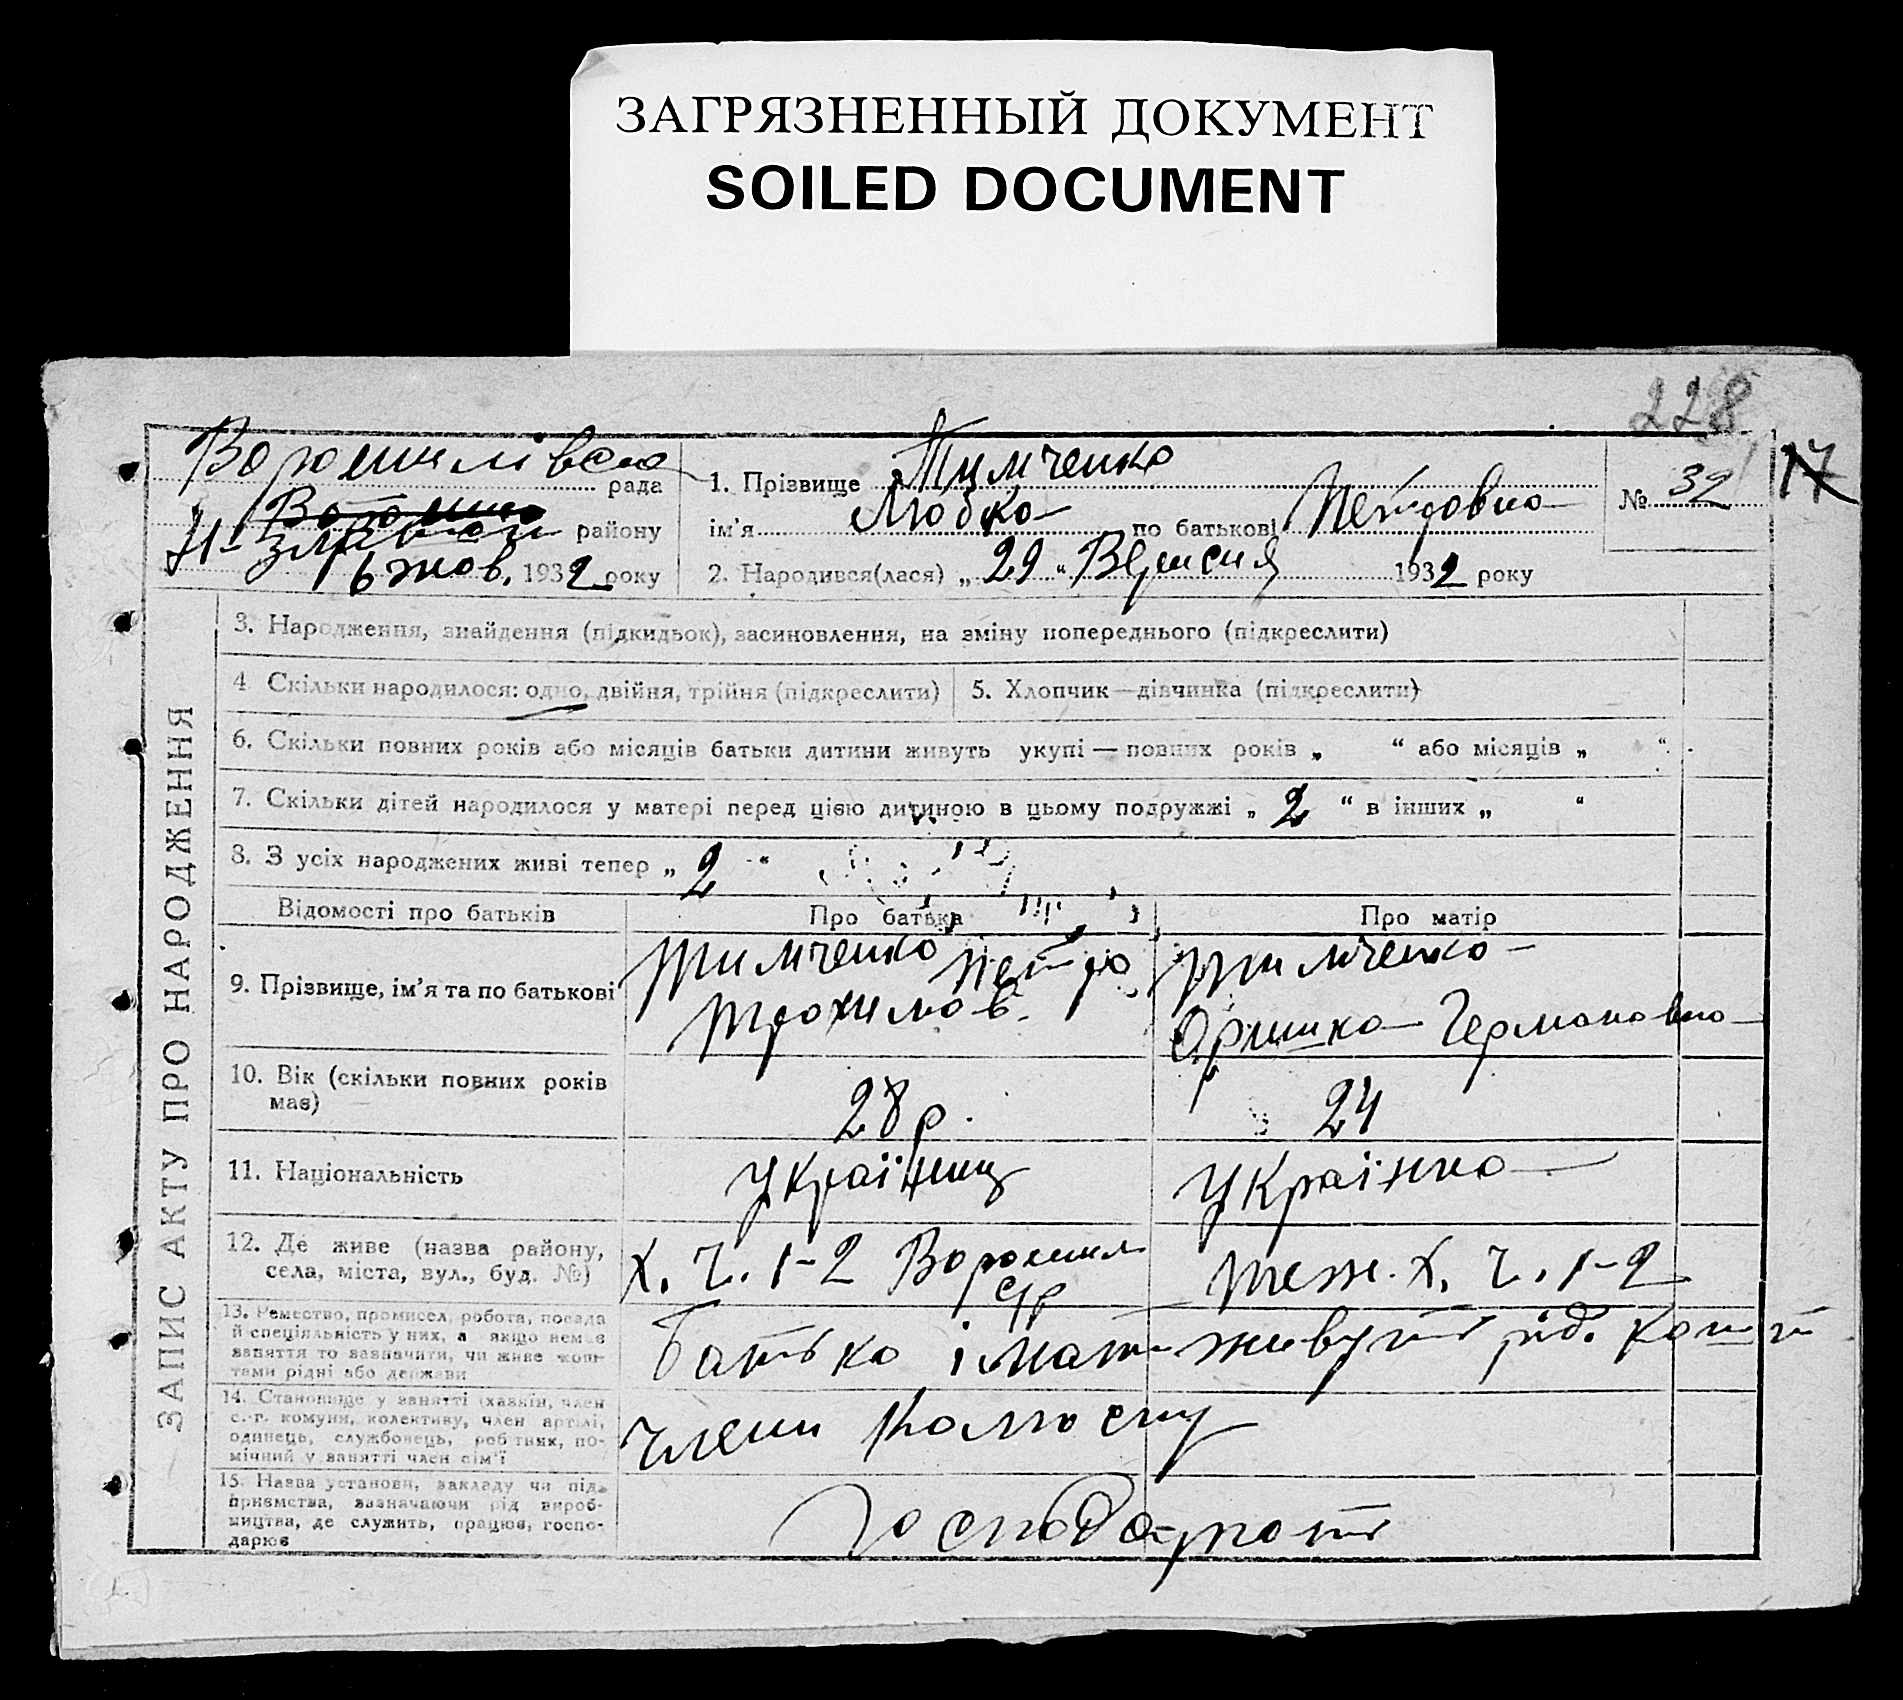 ЗАГРЯЗНЕННЫЙ ДОКУМЕНТ
SOILED DOCUMENT
228
17
Ворошилівська рада
Н-Златопіл району
6 жов. 1932 року
1. Прізвище Тимченко
ім'я Любка по батькові Петровна
№ 32
2. Народився(лася) „ 29 “ Вересня 1932 року
ЗАПИС АКТУ ПРО НАРОДЖЕННЯ
3. Народження, знайдення (підкидьок), засиновлення, на зміну попереднього (підкреслити)
4 Скільки народилося: одно, двійня, трійня (підкреслити)
5. Хлопчик—дівчинка (підкреслити)
6. Скільки повних років або місяців батьки дитини живуть укупі — повних років „ “ або місяців „ “
7. Скільки дітей народилося у матері перед цією дитиною в цьому подружжі „ 2 “ в інших „ “
8. З усіх народжених живі тепер „ 2 “
Відомості про батьків
Про батька
Про матір
9. Прізвище, ім'я та по батькові
Тимченко Петро
Трохимов.
Тимченко
Оришка Германовна
10. Вік (скільки повних років
має)
28 р.
24
11. Національність
Українец
Українка
12. Де живе (назва району,
села, міста, вул., буд. №)
Х. Ч. 1-2 Ворошил
с/р
теж. Х. Ч. 1-2
13. Ремество, промисел, робота, посада
й спеціяльність у них, а якщо немає
заняття то зазначити, чи живе кош-
тами рідні або держави
Батько і мати живут рід. кошт
14. Становище у занятті (хазяїн, член
с.-г. комуни, колективу, член артілі,
одинець, службовець, робітник, по-
мічний у занятті член сім'ї
члени
15. Назва установи, закладу чи під-
приємства, зазначаючи рід вироб-
ництва, де служить, працює, госпо-
дарює